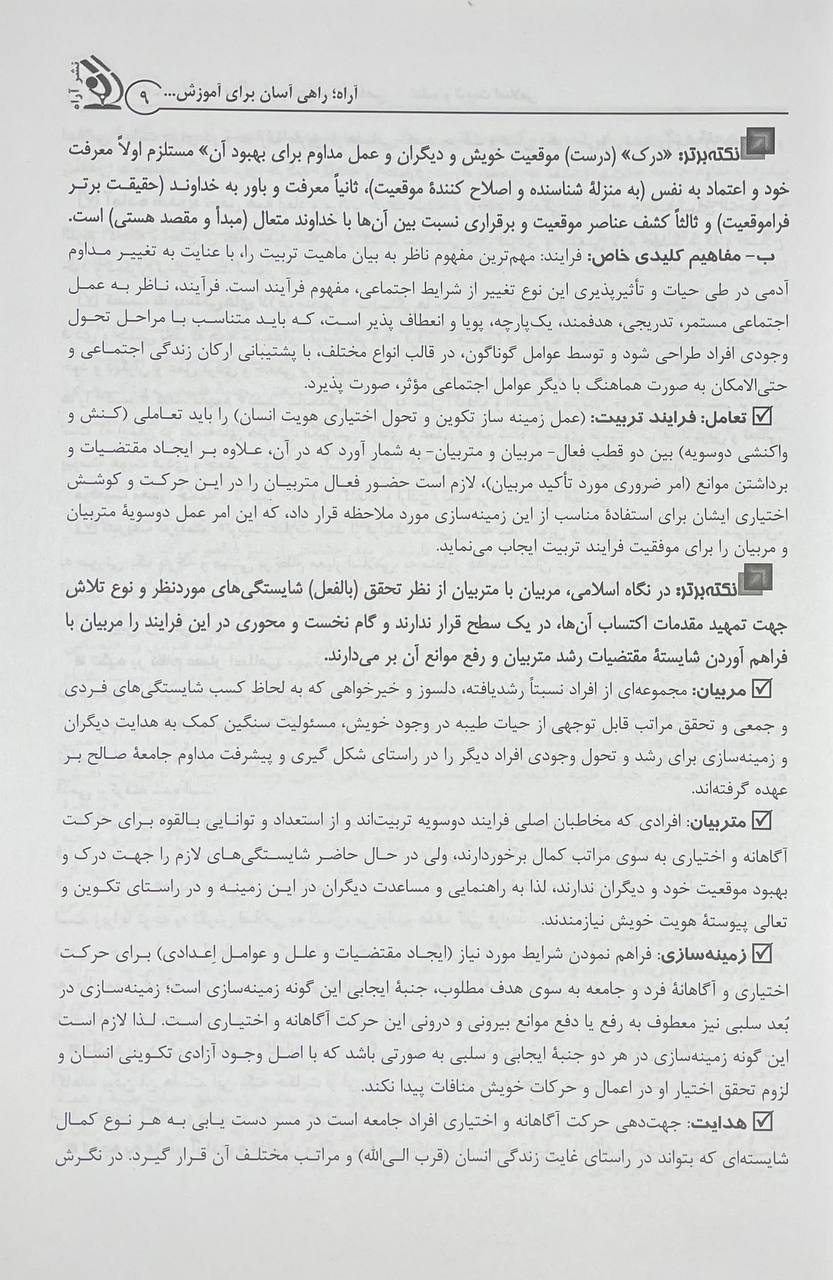 نشر آراه
۹ آراه؛ راهی آسان برای آموزش...
نکته‌برتر: «درک» (درست) موقعیت خویش و دیگران و عمل مداوم برای بهبود آن» مستلزم اولاً معرفت
خود و اعتماد به نفس (به منزلهٔ شناسنده و اصلاح کنندهٔ موقعیت)، ثانیاً معرفت و باور به خداوند (حقیقت برتر
فراموقعیت) و ثالثاً کشف عناصر موقعیت و برقراری نسبت بین آن‌ها با خداوند متعال (مبدأ و مقصد هستی) است.
ب- مفاهیم کلیدی خاص: فرایند: مهم‌ترین مفهوم ناظر به بیان ماهیت تربیت را، با عنایت به تغییر مداوم
آدمی در طی حیات و تأثیرپذیری این نوع تغییر از شرایط اجتماعی، مفهوم فرآیند است. فرآیند، ناظر به عمل
اجتماعی مستمر، تدریجی، هدفمند، یک‌پارچه، پویا و انعطاف پذیر است، که باید متناسب با مراحل تحول
وجودی افراد طراحی شود و توسط عوامل گوناگون، در قالب انواع مختلف، با پشتیبانی ارکان زندگی اجتماعی و
حتی‌الامکان به صورت هماهنگ با دیگر عوامل اجتماعی مؤثر، صورت پذیرد.
☑ تعامل: فرایند تربیت: (عمل زمینه ساز تکوین و تحول اختیاری هویت انسان) را باید تعاملی (کنش و
واکنشی دوسویه) بین دو قطب فعال- مربیان و متربیان- به شمار آورد که در آن، علاوه بر ایجاد مقتضیات و
برداشتن موانع (امر ضروری مورد تأکید مربیان)، لازم است حضور فعال متربیان را در این حرکت و کوشش
اختیاری ایشان برای استفادهٔ مناسب از این زمینه‌سازی مورد ملاحظه قرار داد، که این امر عمل دوسویهٔ متربیان
و مربیان را برای موفقیت فرایند تربیت ایجاب می‌نماید.
نکته‌برتر: در نگاه اسلامی، مربیان با متربیان از نظر تحقق (بالفعل) شایستگی‌های موردنظر و نوع تلاش
جهت تمهید مقدمات اکتساب آن‌ها، در یک سطح قرار ندارند و گام نخست و محوری در این فرایند را مربیان با
فراهم آوردن شایستهٔ مقتضیات رشد متربیان و رفع موانع آن بر می‌دارند.
☑ مربیان: مجموعه‌ای از افراد نسبتاً رشدیافته، دلسوز و خیرخواهی که به لحاظ کسب شایستگی‌های فردی
و جمعی و تحقق مراتب قابل توجهی از حیات طیبه در وجود خویش، مسئولیت سنگین کمک به هدایت دیگران
و زمینه‌سازی برای رشد و تحول وجودی افراد دیگر را در راستای شکل گیری و پیشرفت مداوم جامعهٔ صالح بر
عهده گرفته‌اند.
☑ متربیان: افرادی که مخاطبان اصلی فرایند دوسویه تربیت‌اند و از استعداد و توانایی بالقوه برای حرکت
آگاهانه و اختیاری به سوی مراتب کمال برخوردارند، ولی در حال حاضر شایستگی‌های لازم را جهت درک و
بهبود موقعیت خود و دیگران ندارند، لذا به راهنمایی و مساعدت دیگران در این زمینه و در راستای تکوین و
تعالی پیوستهٔ هویت خویش نیازمندند.
☑ زمینه‌سازی: فراهم نمودن شرایط مورد نیاز (ایجاد مقتضیات و علل و عوامل إعدادی) برای حرکت
اختیاری و آگاهانهٔ فرد و جامعه به سوی هدف مطلوب، جنبهٔ ایجابی این گونه زمینه‌سازی است؛ زمینه‌سازی در
بُعد سلبی نیز معطوف به رفع یا دفع موانع بیرونی و درونی این حرکت آگاهانه و اختیاری است. لذا لازم است
این گونه زمینه‌سازی در هر دو جنبهٔ ایجابی و سلبی به صورتی باشد که با اصل وجود آزادی تکوینی انسان و
لزوم تحقق اختیار او در اعمال و حرکات خویش منافات پیدا نکند.
☑ هدایت: جهت‌دهی حرکت آگاهانه و اختیاری افراد جامعه است در مسر دست یابی به هر نوع کمال
شایسته‌ای که بتواند در راستای غایت زندگی انسان (قرب الی‌الله) و مراتب مختلف آن قرار گیرد. در نگرش